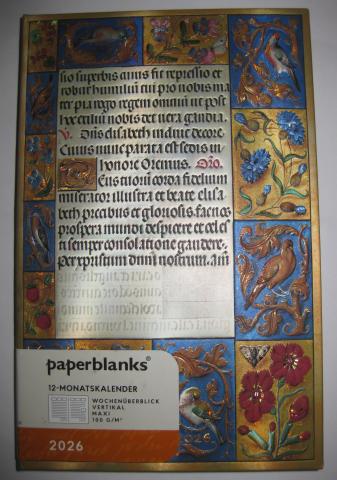 sio superbis anus fit repressio et
robur humilium tui pro nobis ma
ter pia rego regem omnium ut post
hoc exilium nobis det vera gaudia.
V. Diffusa Elisabeth induit decore
Cuius nunc parata est sedis in
honore Oremus. Oro.
tuorum corda fidelium
miserator illustra et beate elisa
beth precibus et gloriosis fac nos
prospera mundi despicere et celes
ti semper consolatione gaudere.
Per xpristum dnum nostrum. am
paperblanks®
12-MONATSKALENDER
WOCHENÜBERBLICK
VERTIKAL
MAXI
100 G/M²
2026